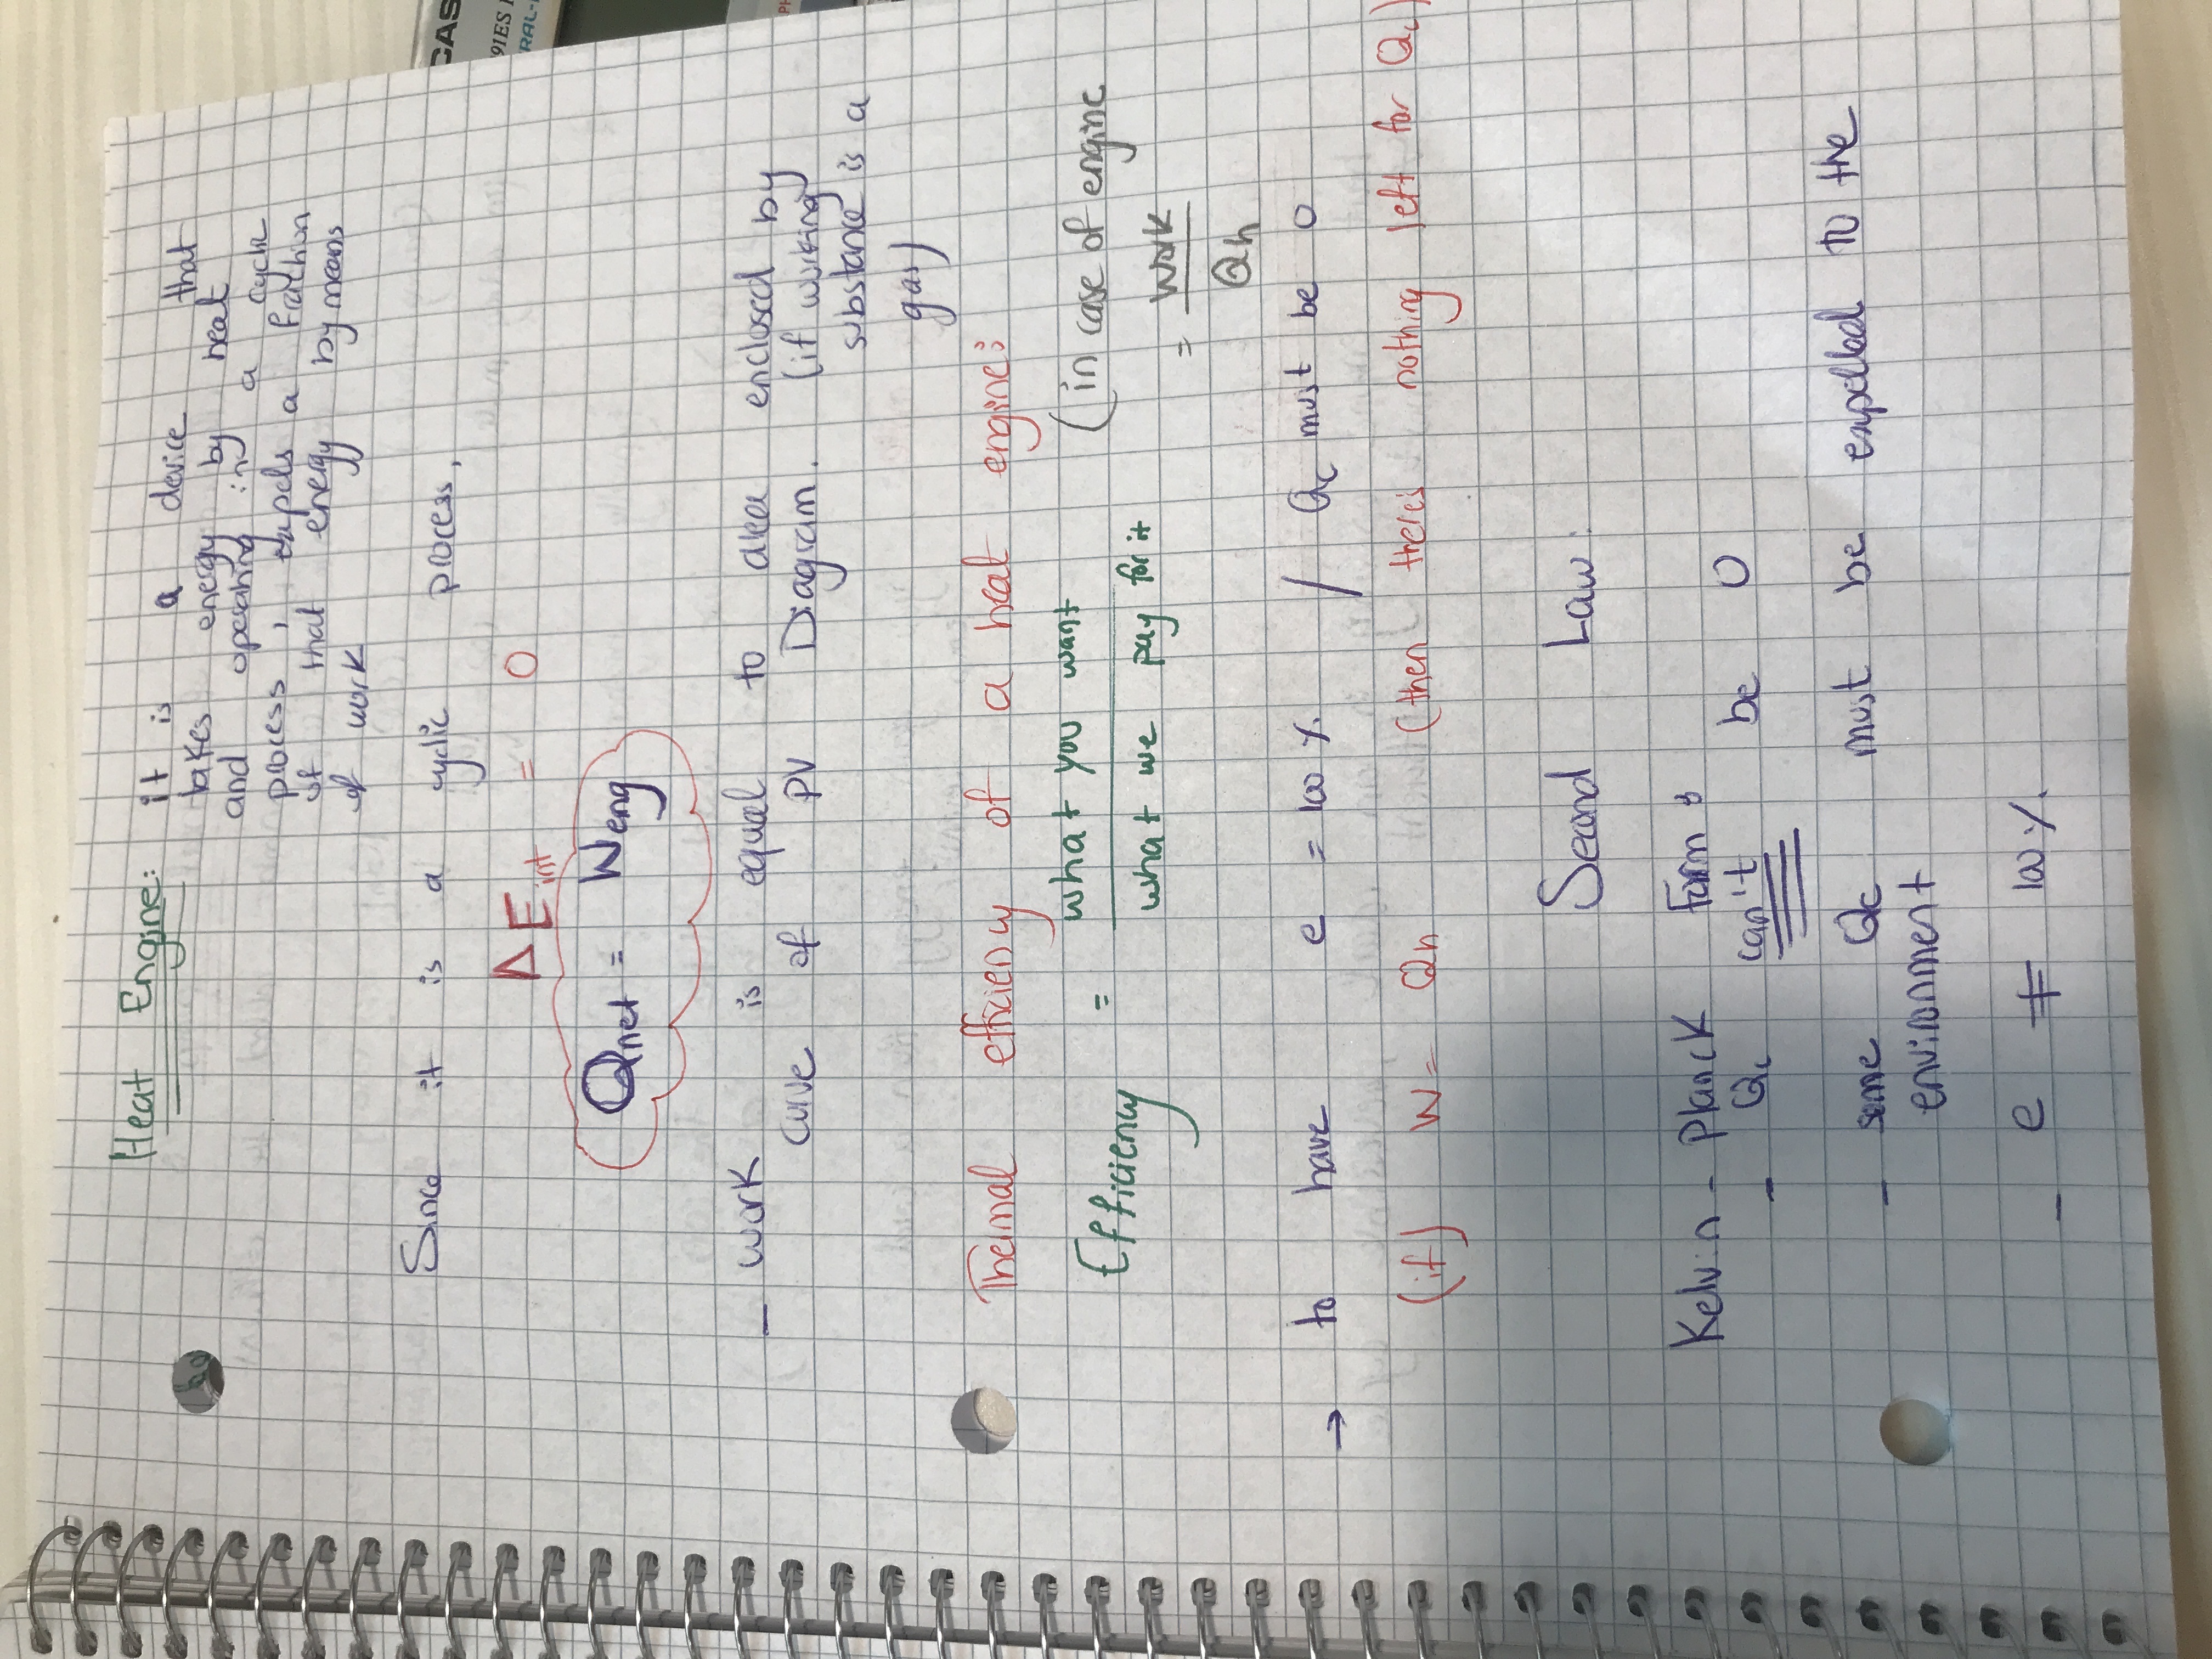 Heat Engine: it is a device that
takes energy by heat
and operating in a cyclic
process, expels a frathion
of that energy by means
of work
Since it is a cyclic process,
ΔEint = 0
Qnet = Weng
- work is equal to area enclosed by
curve of PV Diagram. (if working
substance is a
gas)
Thermal efficieny of a heat engine:
Efficiency = what you want / what we pay for it (in case of engine
= work / Qh
→ to have e = 100 % / Qc must be 0
(if) W = Qh (then there's nothing left for Qc)
Second Law:
Kelvin - Planck Form:
- Qc can't be 0
- some Qc must be expelled to the
environment
- e ≠ 100 %.
CAS
91ES
RAL-